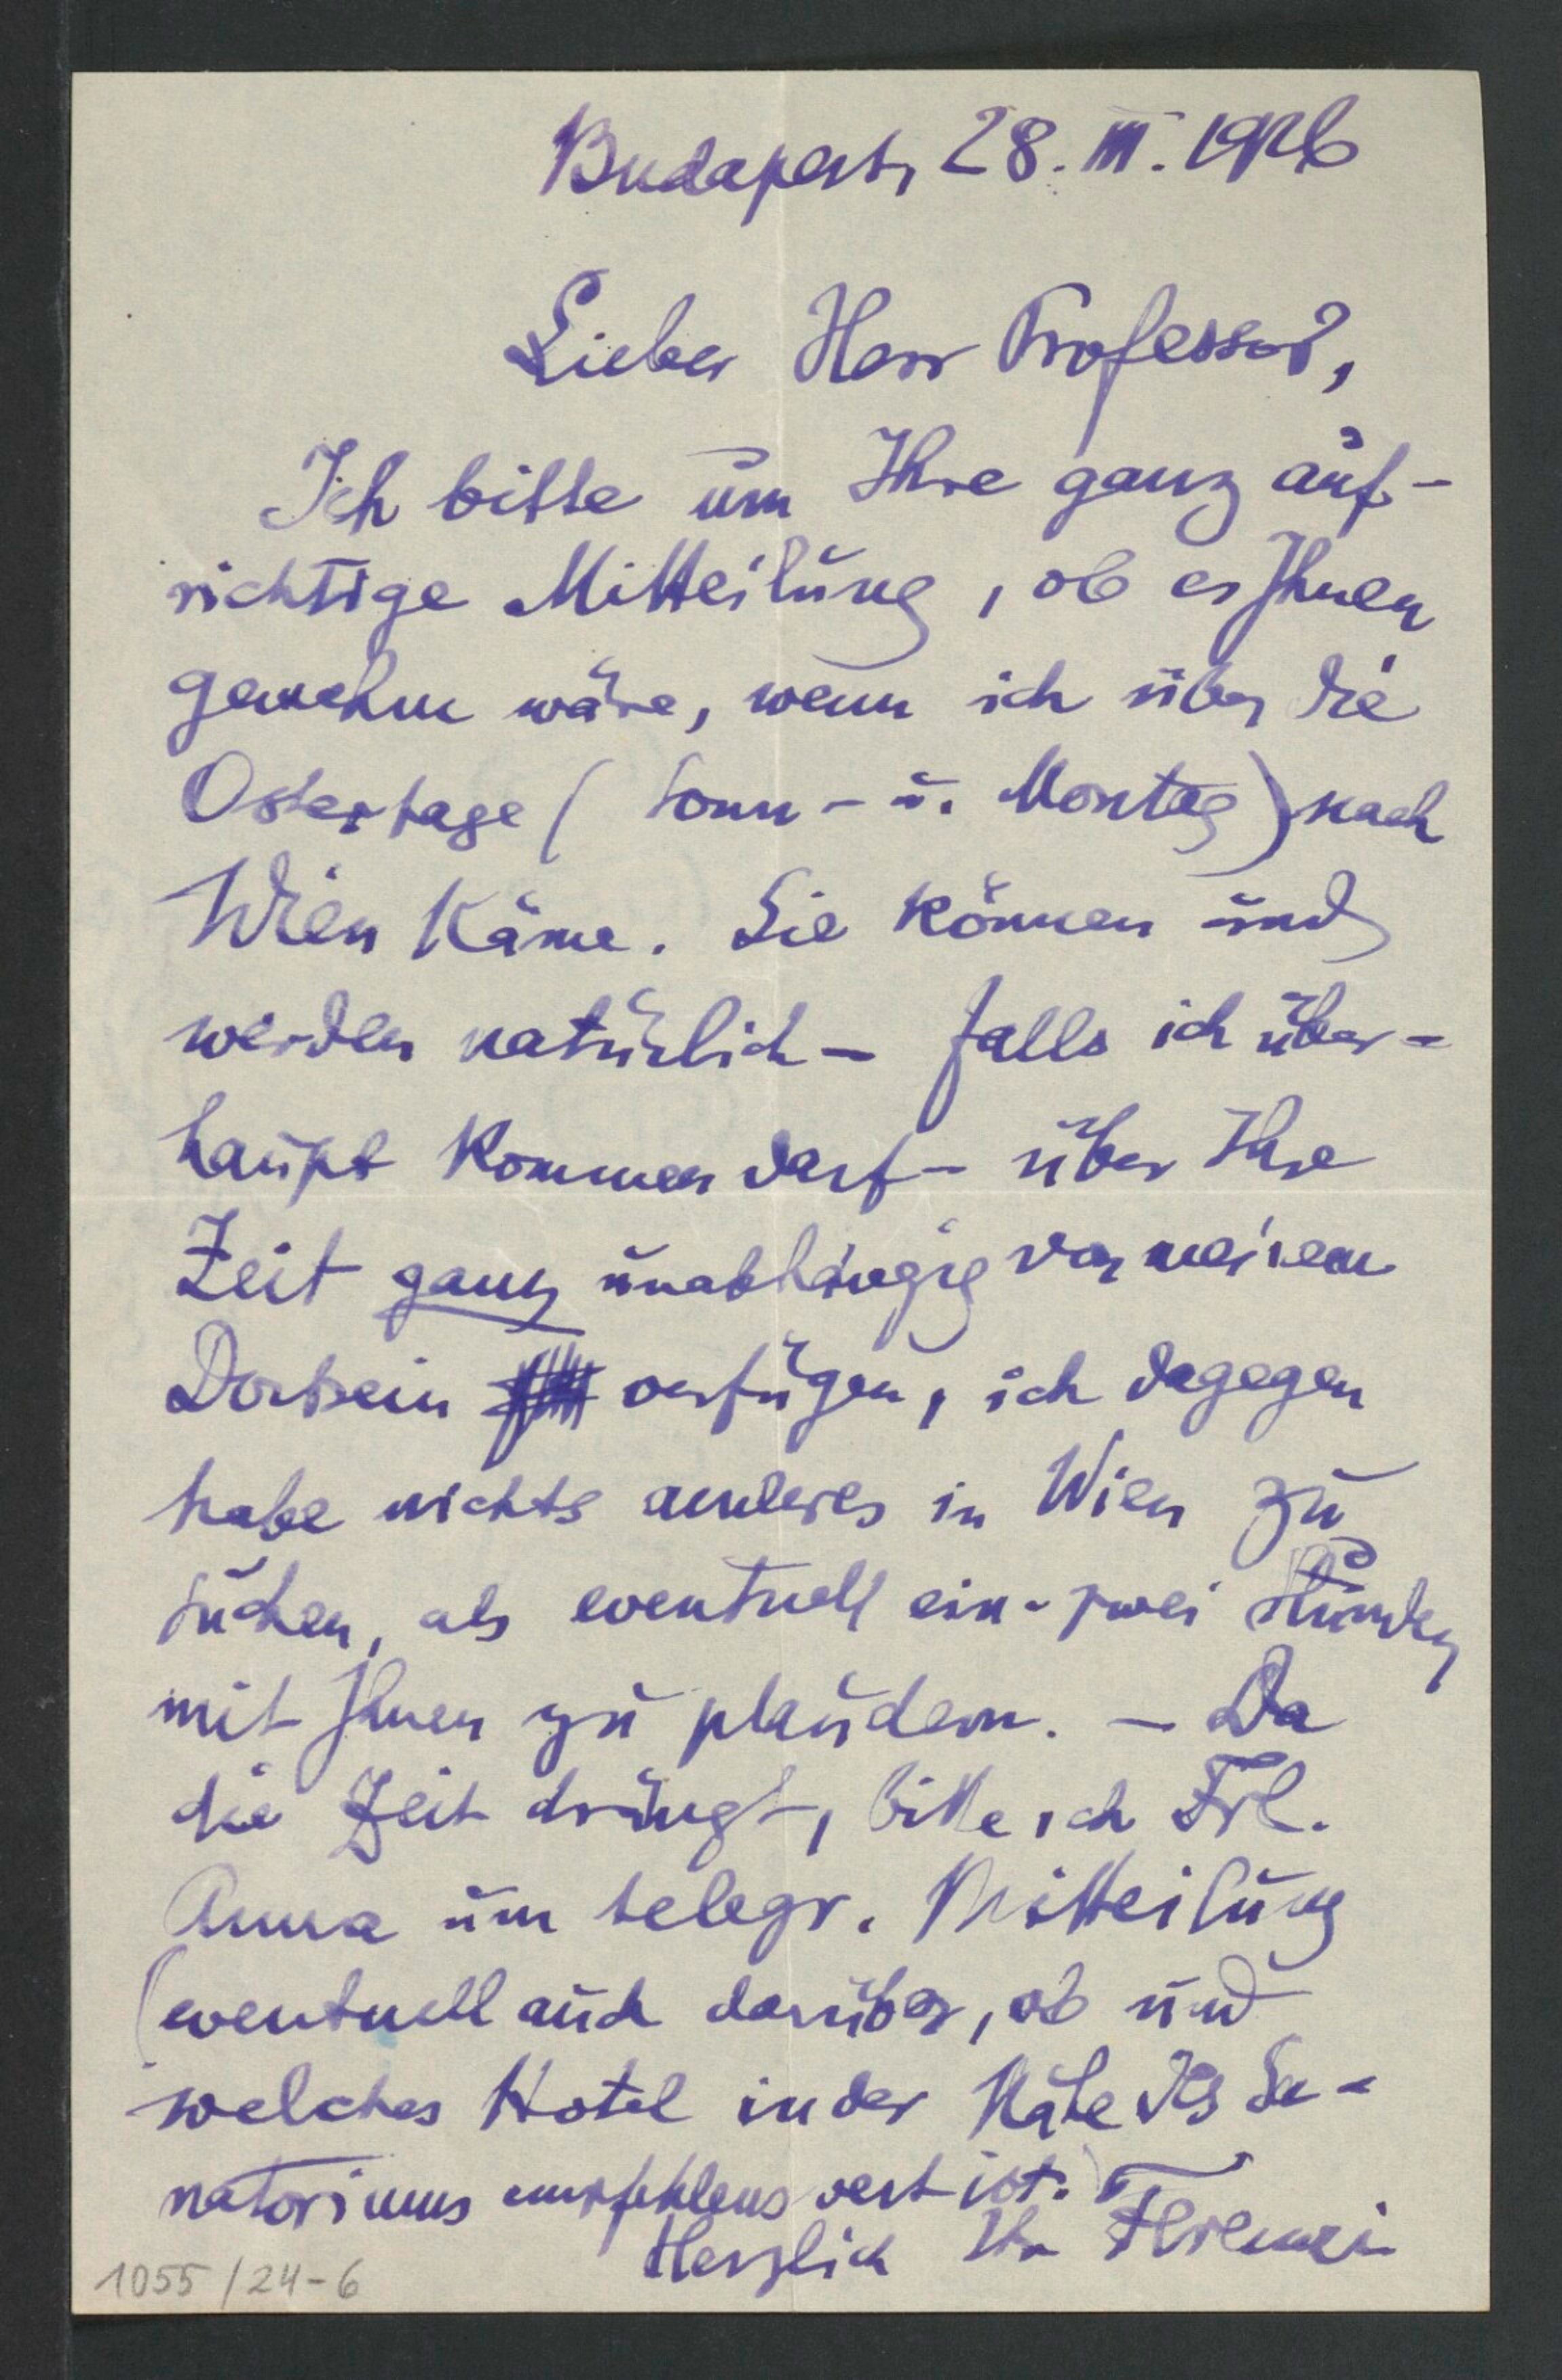 Budapest, 28. III. 1926
Lieber Herr Professor,
Ich bitte um Ihre ganz auf-
richtige Mitteilung, ob es Ihnen
genehm wäre, wenn ich über die
Ostertage (Sonn- u. Montag) nach
Wien käme. Sie können und
werden natürlich – falls ich über-
haupt kommen darf – über Ihre
Zeit ganz unabhängig von meinem
Dortsein verfügen, ich dagegen
habe nichts anderes in Wien zu
suchen, als eventuell ein-zwei Stunden
mit Ihnen zu plaudern. – Da
die Zeit drängt, bitte ich Frl.
Anna um telegr. Mitteilung
(eventuell auch darüber, ob und
welches Hotel in der Nähe des Sa-
natoriums empfehlenswert ist.)
Herzlich Ihr Ferenczi
1055/24-6